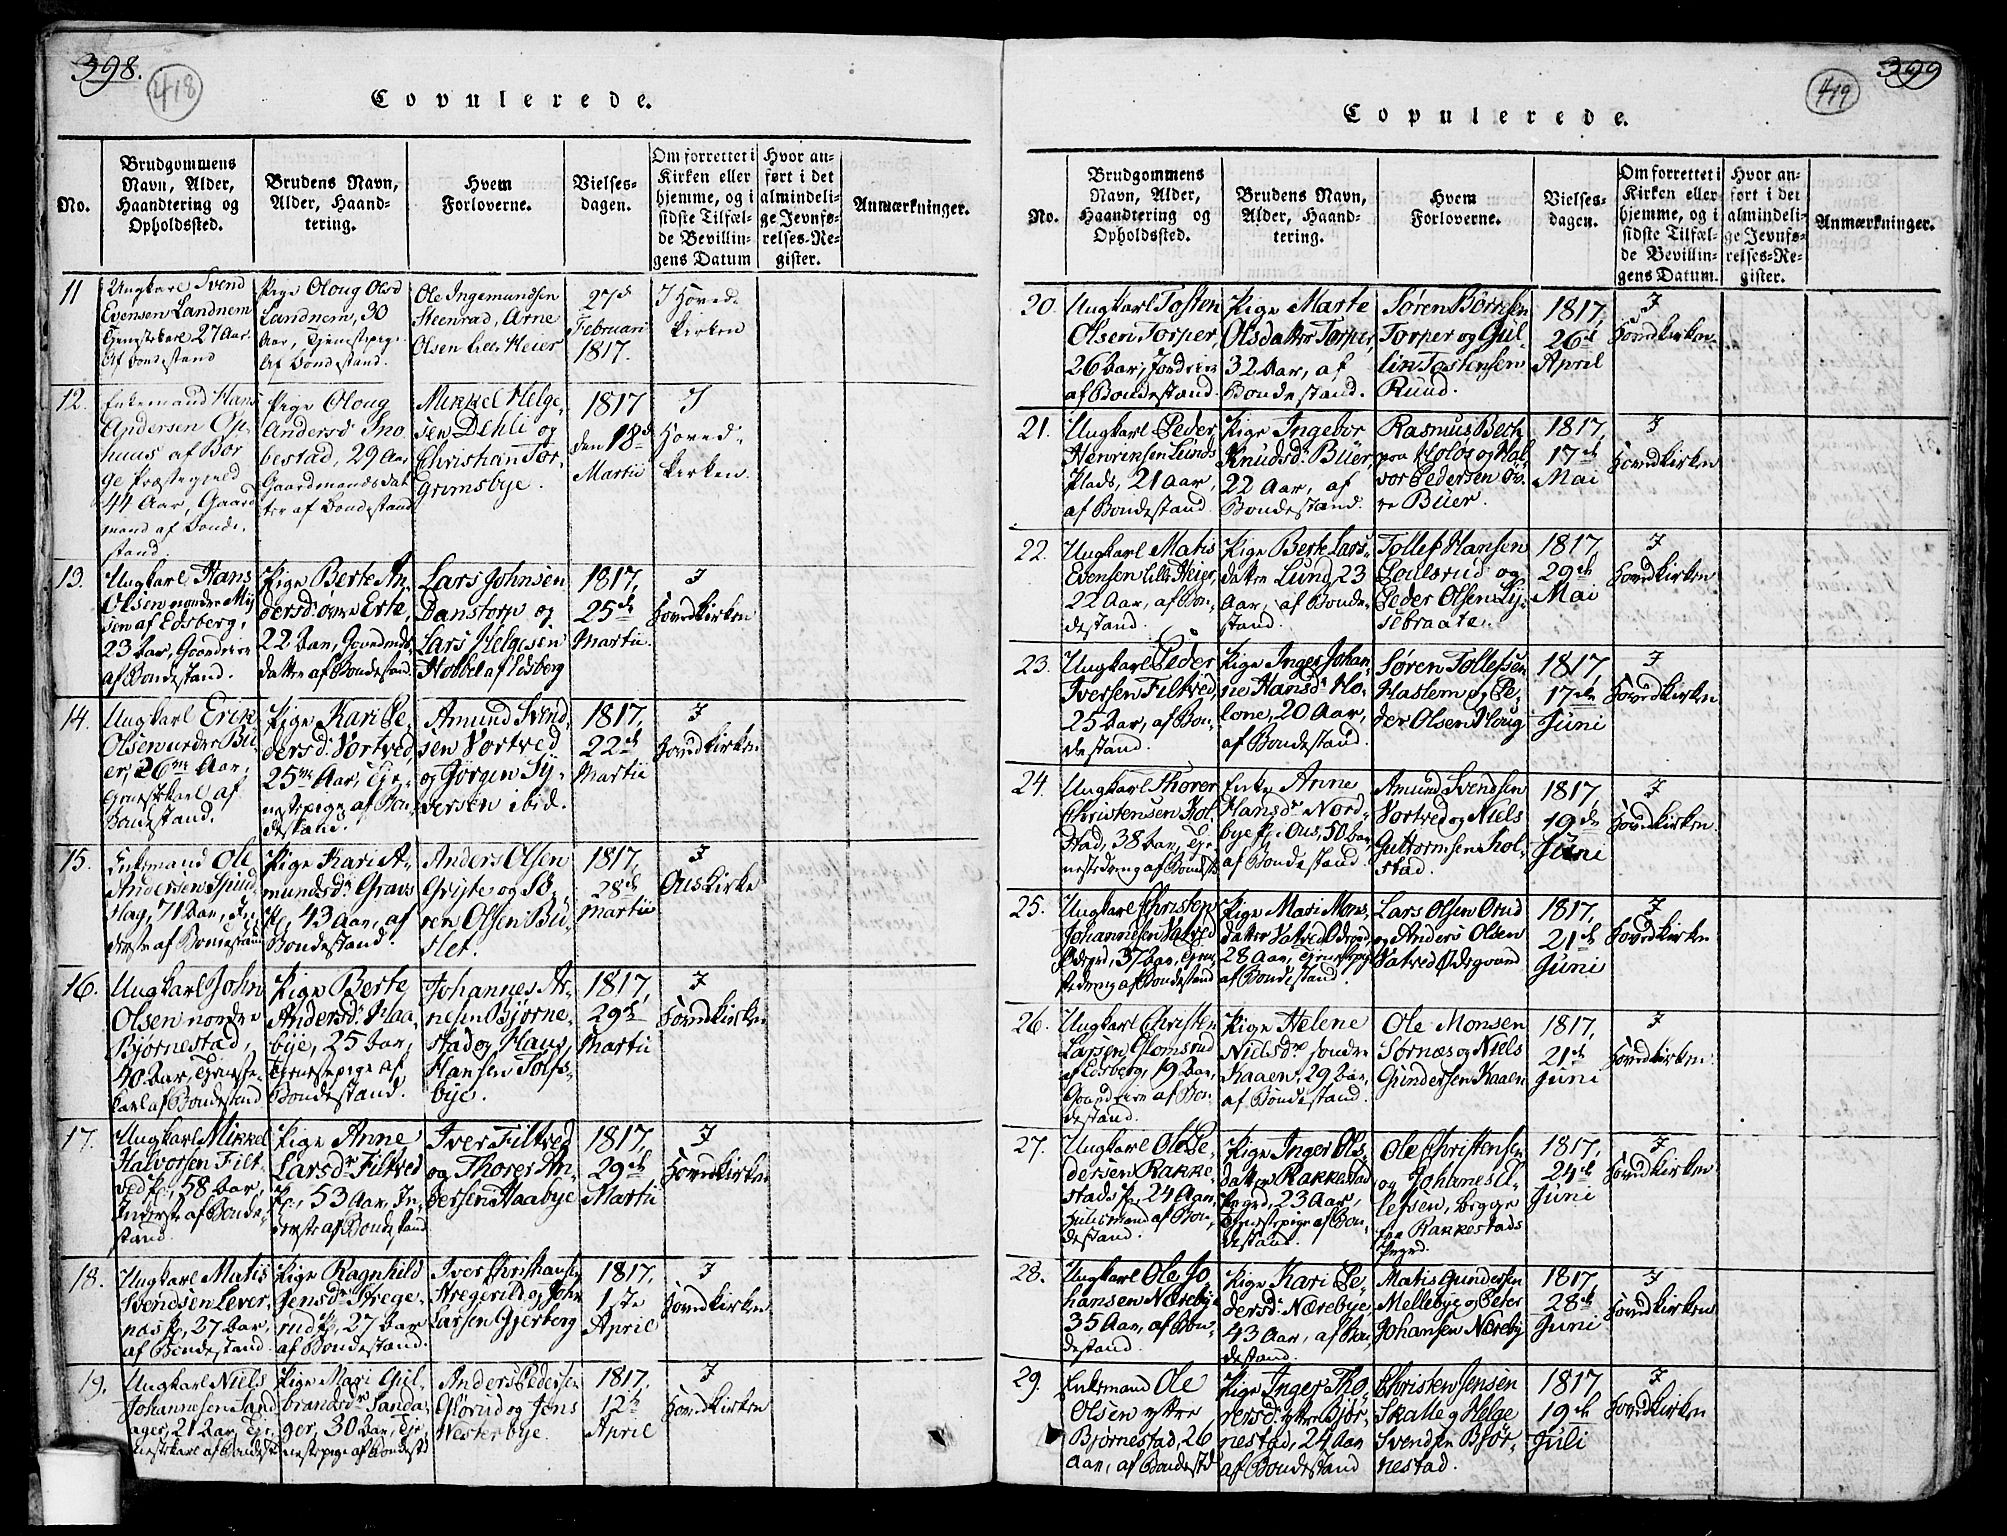 398.
418
Copulerede.
No.
Brudgommens
Navn, Alder,
Haandtering og
Opholdssted.
Brudens Navn,
Alder, Haand-
tering.
Hvem
Forloverne.
Vielses-
dagen.
Om forrettet i
Kirken eller
hjemme, og i
sidste Tilfæl-
de Bevillin-
gens Datum
Hvor an-
ført i det
almindeli-
ge Jevnfø-
relses-Re-
gister.
Anmærkninger.
11
Ungkarl Svend
Evensen Landnem
Tjenestekarl 27 Aar.
Af Bondestand
Pige Oloug Olsd
Landnem, 30
Aar, Tjenestepige
Af Bondestand.
Ole Ingemundsen
Steenrad, Arne
Olsen Lille Heier
27d
Februari
1817.
I Hoved-
kirken
12.
Enkemand Hans
Andersen Op-
huus af Bor
ge Præstegield
44 Aar, Gaard
mand af Bonde-
stand.
Pige Oloug
Andersd Sno
bestad, 29 Aar
Gaardmandsdat
ter af Bondestand
Mikkel Helge-
sen Dehli og
Christian Tor-
grimsbye.
1817
den 18d
Martii
I
Hoved-
kirken.
13.
Ungkarl Hans
Olsen nordre Mÿ
sen af Edsberg,
23 Aar,
af Bondestand.
Pige Berte An
dersd. øvre Erte,
22 Aar,
Datter af Bondestand.
Lars Johnsen
Danstorp og
Lars Helgesen
Hobbel af Edsberg
1817,
25de
Martii
I
Hovedkirken
14.
Ungkarl Erik
Olsen nedre Bü-
er, 26 Aar,
Tjenestekarl af
Bondestand.
Pige Kari Pe-
dersd. Vortved,
25 Aar, Tje-
nestepige af Bon-
destand.
Amund Svend
sen Vortved
og Jørgen Sÿ-
versen ibid.
1817,
22de
Martii
I
Hovedkirken
15.
Enkemand Ole
Andersen Spiud
slag, 71 Aar, In-
derste af Bondestand
Pige Kari A-
mundsdr. Gravs
Ie, 43 Aar, af
Bondestand.
Anders Olsen
Grÿte og Sø-
ren Olsen Bü-
slet.
1817,
28de
Martii
I
Ous Kirke
16.
Ungkarl John
Olsen nordre
Bjørnestad,
40 Aar, Tjeneste-
karl af Bondestand
Pige Berte
Andersd. Haa-
bÿe, 25 Aar,
Tjenestepige af
Bondestand.
Johannes Ar-
nesen Bjørne-
stad og Hans
Hansen Tofs-
bye.
1817,
29de
Martii
I
Hovedkirken
17.
Ungkarl Mikkel
Halvorsen Filt-
ved P., 58 Aar,
Inderste af Bonde-
stand.
Pige Anne
Larsdr. Filtved
P., 53 Aar, In-
derste af Bondestand
Iver Filtved
og Thorer An-
dersen Haabye
1817,
29de
Martii
I
Hovedkirken
18.
Ungkarl Matis
Svendsen Lever-
næs P., 27 Aar,
af Bondestand.
Pige Ragnhild
Jensdr. Strege-
rud P., 27 Aar
af Bondestand.
Iver Christiansen
Stregerud og John
Larsen Gjerberg
1817,
1ste
April
I
Hovedkirken
19.
Ungkarl Niels
Johannesen Sand
ager, 21 Aar, Tje-
nestekarl af Bondest
Pige Mari Gul-
brandsdr. Sanda-
ger, 30 Aar, Tje-
nestepige af Bondestd
Anders Pedersen
Glorud og Jens
Westerbye.
1817,
12te
April
I
Hovedkirken
419
399
Copulerede.
No.
Brudgommens
Navn, Alder,
Haandtering og
Opholdssted.
Brudens Navn,
Alder, Haand-
tering.
Hvem
Forloverne.
Vielses-
dagen.
Om forrettet i
Kirken eller
hjemme, og i
sidste Tilfæl-
de Bevillin-
gens Datum.
Hvor an-
ført i det
almindeli-
ge Jevnfø-
relses-Re-
gister.
Anmærkninger.
20.
Ungkarl Tosten
Olsen Torper,
26 Aar,
af Bondestand.
Pige Marte
Olsdatter Torper,
32 Aar, af
Bondestand.
Søren Børresen
Torper og Gul-
lin Tostensen
Ruud.
1817,
26de
April
I
Hovedkirken.
21.
Ungkarl Peder
Henriksen Lunds
Plads, 21 Aar,
af Bondestand.
Pige Ingebor
Knudsd. Büer,
22 Aar, af
Bondestand.
Rasmus Beck
paa Holøs og Hal
vor Pedersen Øv-
re Büer.
1817,
17de
Mai
I
Hovedkirken
22.
Ungkarl Matis
Evensen Lille Heier,
22 Aar, af Bon-
destand.
Pige Berte Lars-
datter Lund, 23
Aar, af Bonde-
stand.
Tollef Hansen
Poulsrud og
Peder Olsen Lÿ-
sebraate.
1817,
29de
Mai
I
Hovedkirken
23.
Ungkarl Peder
Iversen Filtved,
25 Aar, af Bon-
destand.
Pige Inger Johan
ne Hansdr. Ho-
lone, 20 Aar,
af Bondestand.
Søren Tollefsen
Haslem og Pe-
der Olsen Houg
1817,
17de
Juni
I
Hovedkirken
24.
Ungkarl Thorer
Christensen Kol-
stad, 38 Aar, Tje-
nestedreng af Bondest.
Enke Anne
Hansdr. Nord-
bye P. i Ous, 50 Aar
af Bondestand.
Amund Svendsen
Vortved og Niels
Guttormsen Kol-
stad.
1817,
19de
Juni
I
Hovedkirken.
25.
Ungkarl Christen
Johannesen Vatved
Ødegrd, 37 Aar, Tjene-
stedreng af Bondestand
Pige Mari Mons-
datter Vatved Ødegrd,
28 Aar, Tjenestepige
af Bondestand.
Lars Olsen Orud
og Anders Olsen
Vatved Ødegaard
1817,
21de
Juni
I
Hovedkirken
26.
Ungkarl Christen
Larsen Glomsrud
af Edsberg, 19 Aar,
af Bon-
destand.
Pige Helene
Nielsdr. søndre
Kaaen, 29 Aar,
af Bondestand.
Ole Monsen
Sørnæs og Niels
Gundersen Kaaen
1817,
21de
Juni
I
Hovedkirken
27.
Ungkarl Ole Pe-
dersen Rakke-
stads P., 24 Aar,
Huusmand af Bon-
destand.
Pige Inger Ols-
datter Rakkestad
Pregrd, 23 Aar,
Tjenestepige af Bon-
destand.
Ole Christensen
og Johanes E-
lefsen, begge
fra Rakkestads
Pregrd.
1817,
24de
Juni
I
Hovedkirken
28.
Ungkarl Ole Jo
hansen Nærebye
35 Aar, af Bon-
destand.
Pige Kari Pe-
dersd. Nærebye,
43 Aar, af Bon-
destand.
Matis Gundersen
Mellebye og Peter
Johansen Nærebÿ
1817,
28de
Juni
I
Hovedkirken
29.
Enkemand Ole
Olsen ÿttre
Bjørnestad, 26
Aar, af Bondestd
Pige Inger Tho-
rersd. ÿttre Bjør-
nestad, 24 Aar
af Bondestand
Christen Jensen
Skalle og Helge
Svendsen Bjør-
nestad.
1817
19de
Juli
I
Hovedkirken